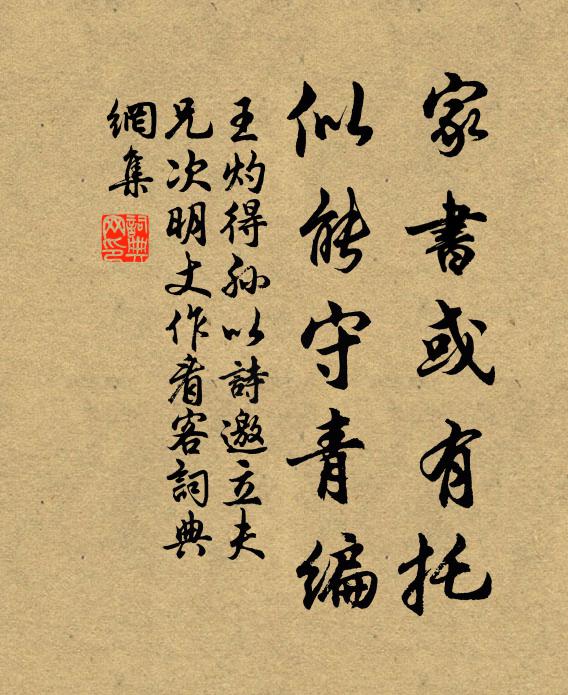 家書或有托
似能守青編
王灼得孫以詩邀立夫
兄次明丈作看客詞典
網集
詞典
网印